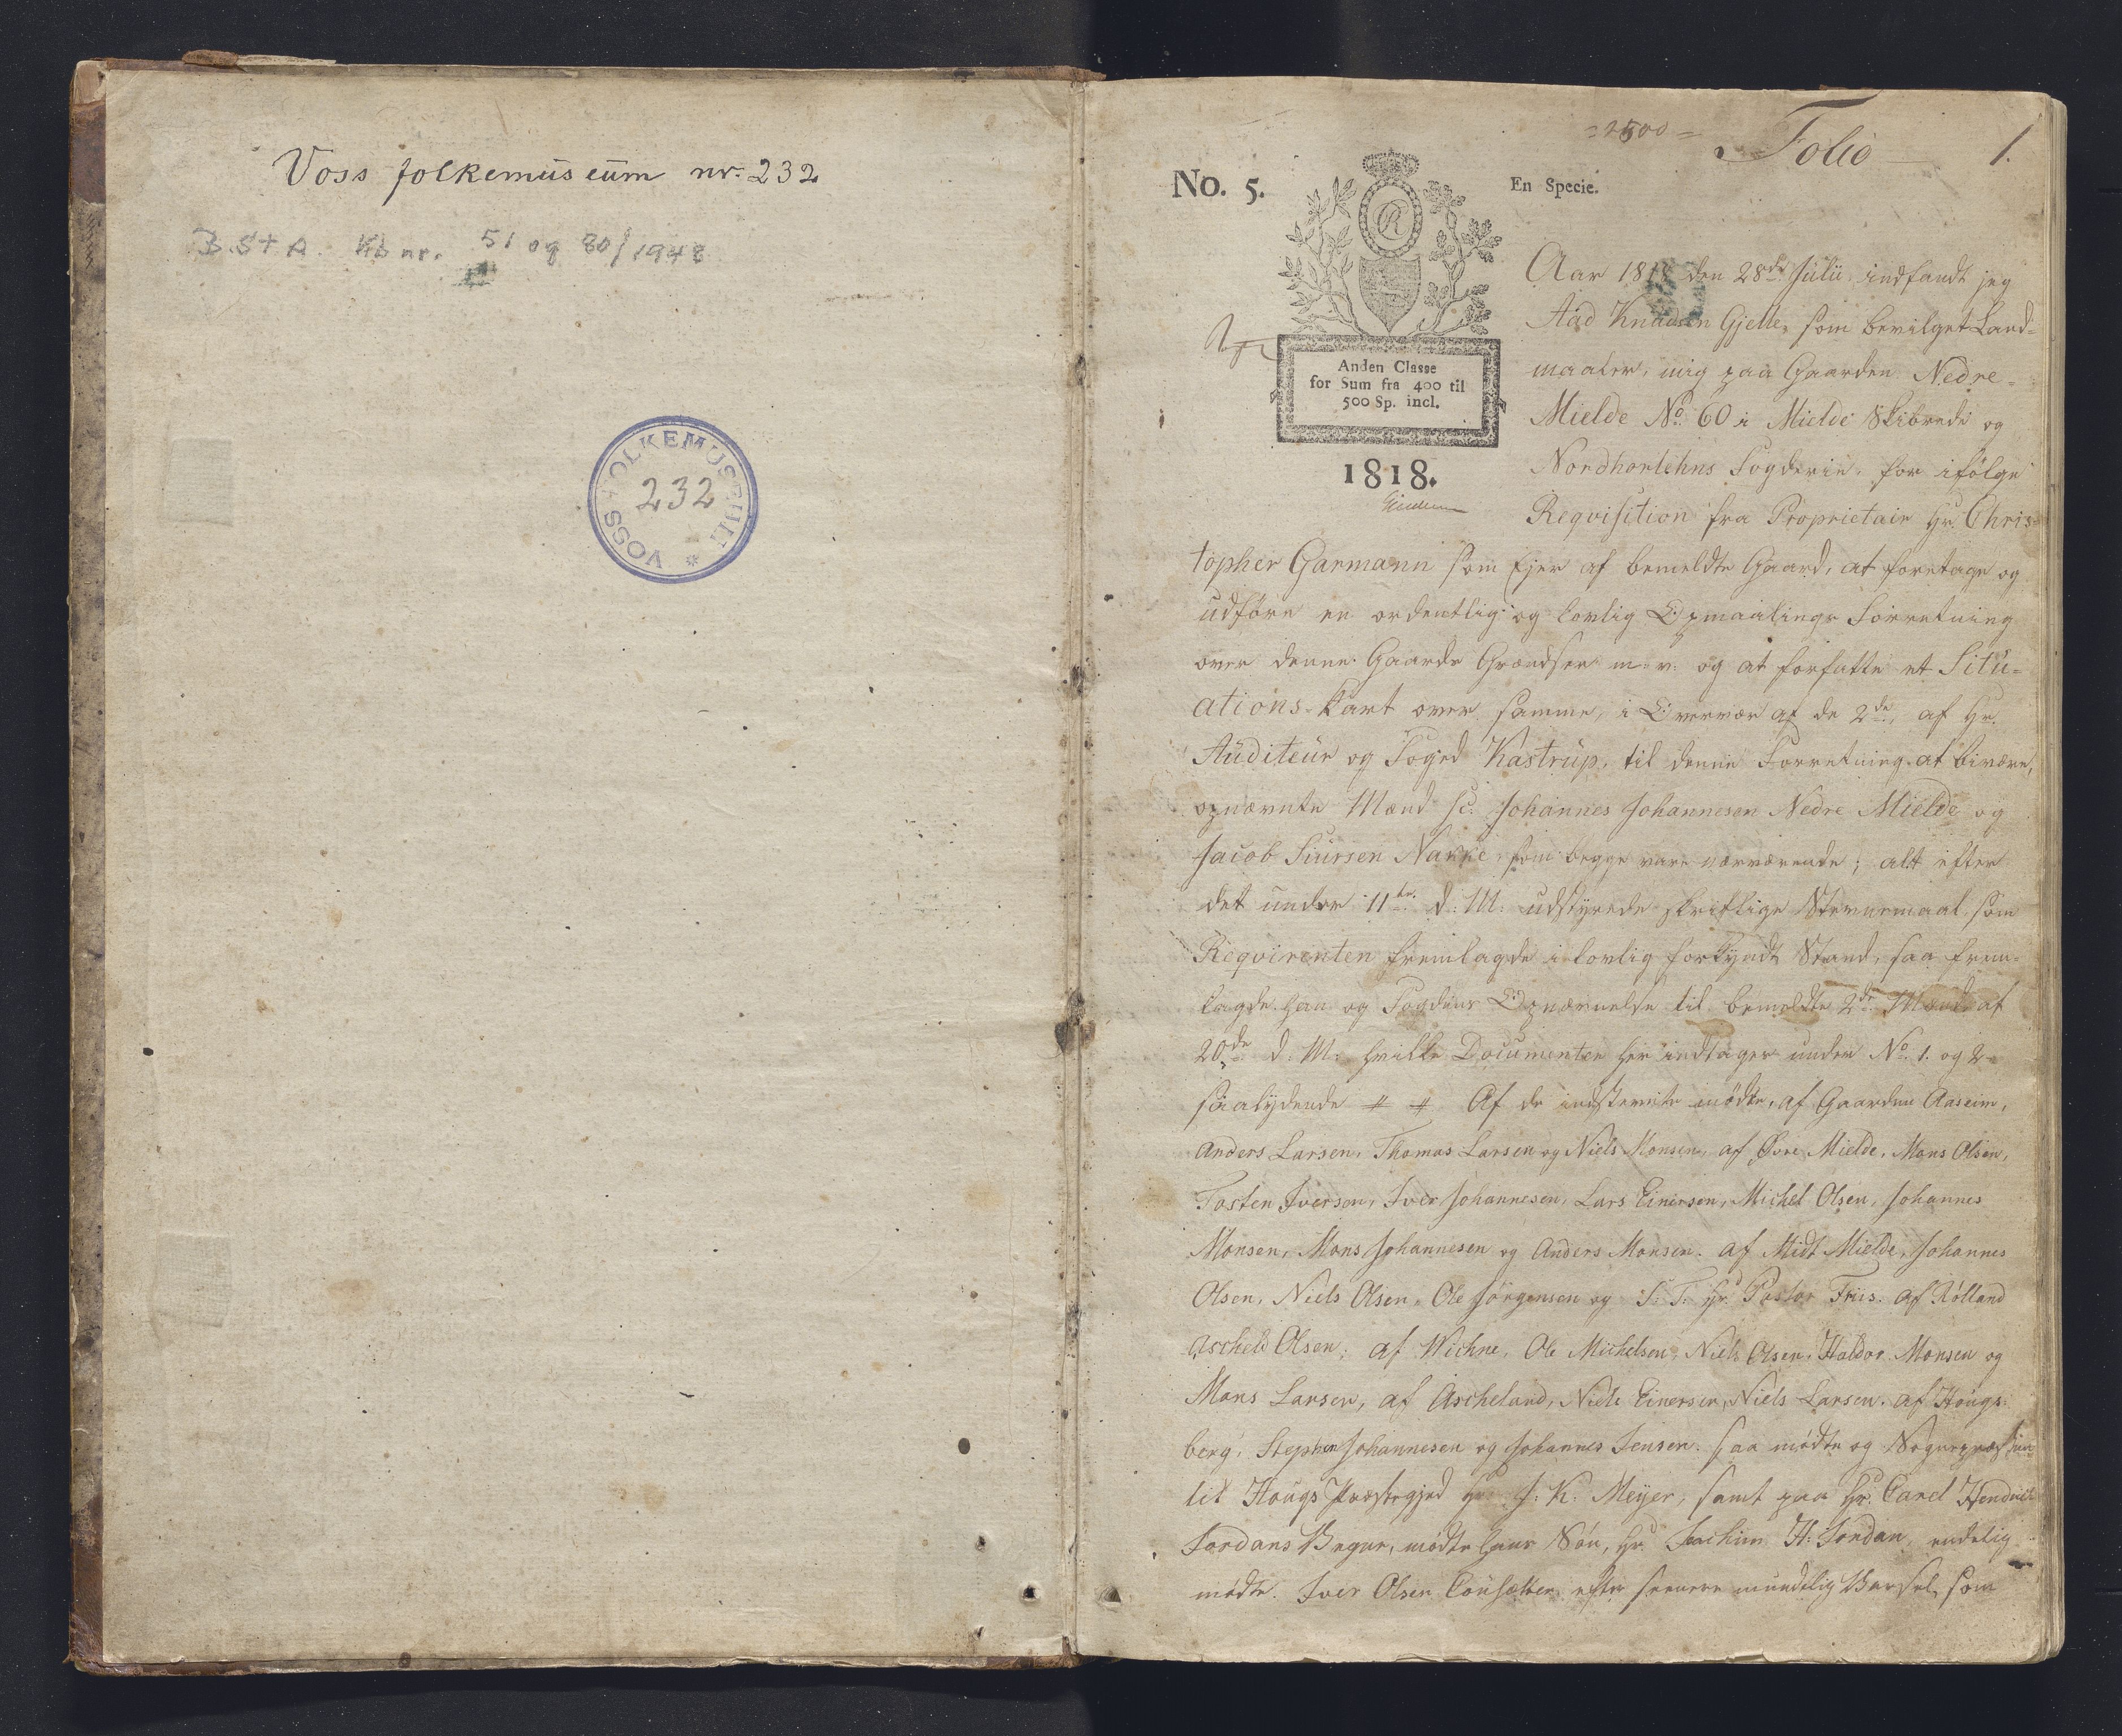 Voss folkemuseum nr. 232
B.St A. Kb nr. 51 og 80/1948
VOSS FOLKEMUSEUM *
232
=2500=
Folio 1.
No. 5.
En Specie.
R
Anden Classe
for Sum fra 400 til
500 Sp. incl.
1818.
Aar 1818 den 28de Julii, indfandt jeg
Aad Knudsen Gjelle, som bevilget Land=
maaler, mig paa Gaarden Nedre=
Mielde No. 60 i Mielde Skibrede og
Nordhorlehns Fogderie, for ifölge
Reqvisition fra Proprietair Hr. Chris=
topher Garmann som Ejer af bemeldte Gaard, at foretage og
udföre en ordentlig og lovlig Opmaalings Forretning
over denne Gaards Grændser m. v. og at forfatte et Situ=
ations-Kart over samme, i Overvær af de 2de, af Hr.
Auditeur og Foged Kastrup, til denne Forretning at bivære,
opnævnte Mænd sc. Johannes Johannesen Nedre Mielde og
Jacob Siursen Nakke, som begge vare nærværende; alt efter
det under 11te d. M. udstyrede skriftlige Stevnemaal som
Reqvirenten fremlagde i lovlig forkyndt Stand, saa frem=
lagde han og Fogdens Opnævnelse til bemeldte 2de Mænd af
20de d. M. hvilke Documenter her indtages under No. 1. og 2.
saalydende # # Af de indstevnte mödte, af Gaarden Aaseim,
Anders Larsen, Thomas Larsen og Niels Monsen, af Øvre Mielde, Mons Olsen,
Tosten Iversen, Iver Johannesen, Lars Einersen, Michel Olsen, Johannes
Monsen, Mons Johannesen og Anders Monsen. af Midt Mielde, Johannes
Olsen, Niels Olsen, Ole Jörgensen og S. T. Hr. Pastor Friis. af Rölland
Ascheld Olsen. af Wichne, Ole Michelsen, Niels Olsen, Haldor Monsen og
Mons Larsen, af Ascheland, Niels Einersen, Niels Larsen. af Hougs=
berg, Stephen Johannesen og Johannes Jensen. saa mödte og Sognepræsten
til Hougs Præstegjed Hr. J. K. Meyer, samt paa Hr. Carel Hendrich
Jordans Vegne, mödte hans Sön, Hr. Joachim H. Jordan, endelig
mödte Iver Olsen efter seenere mundtlig Varsel, som